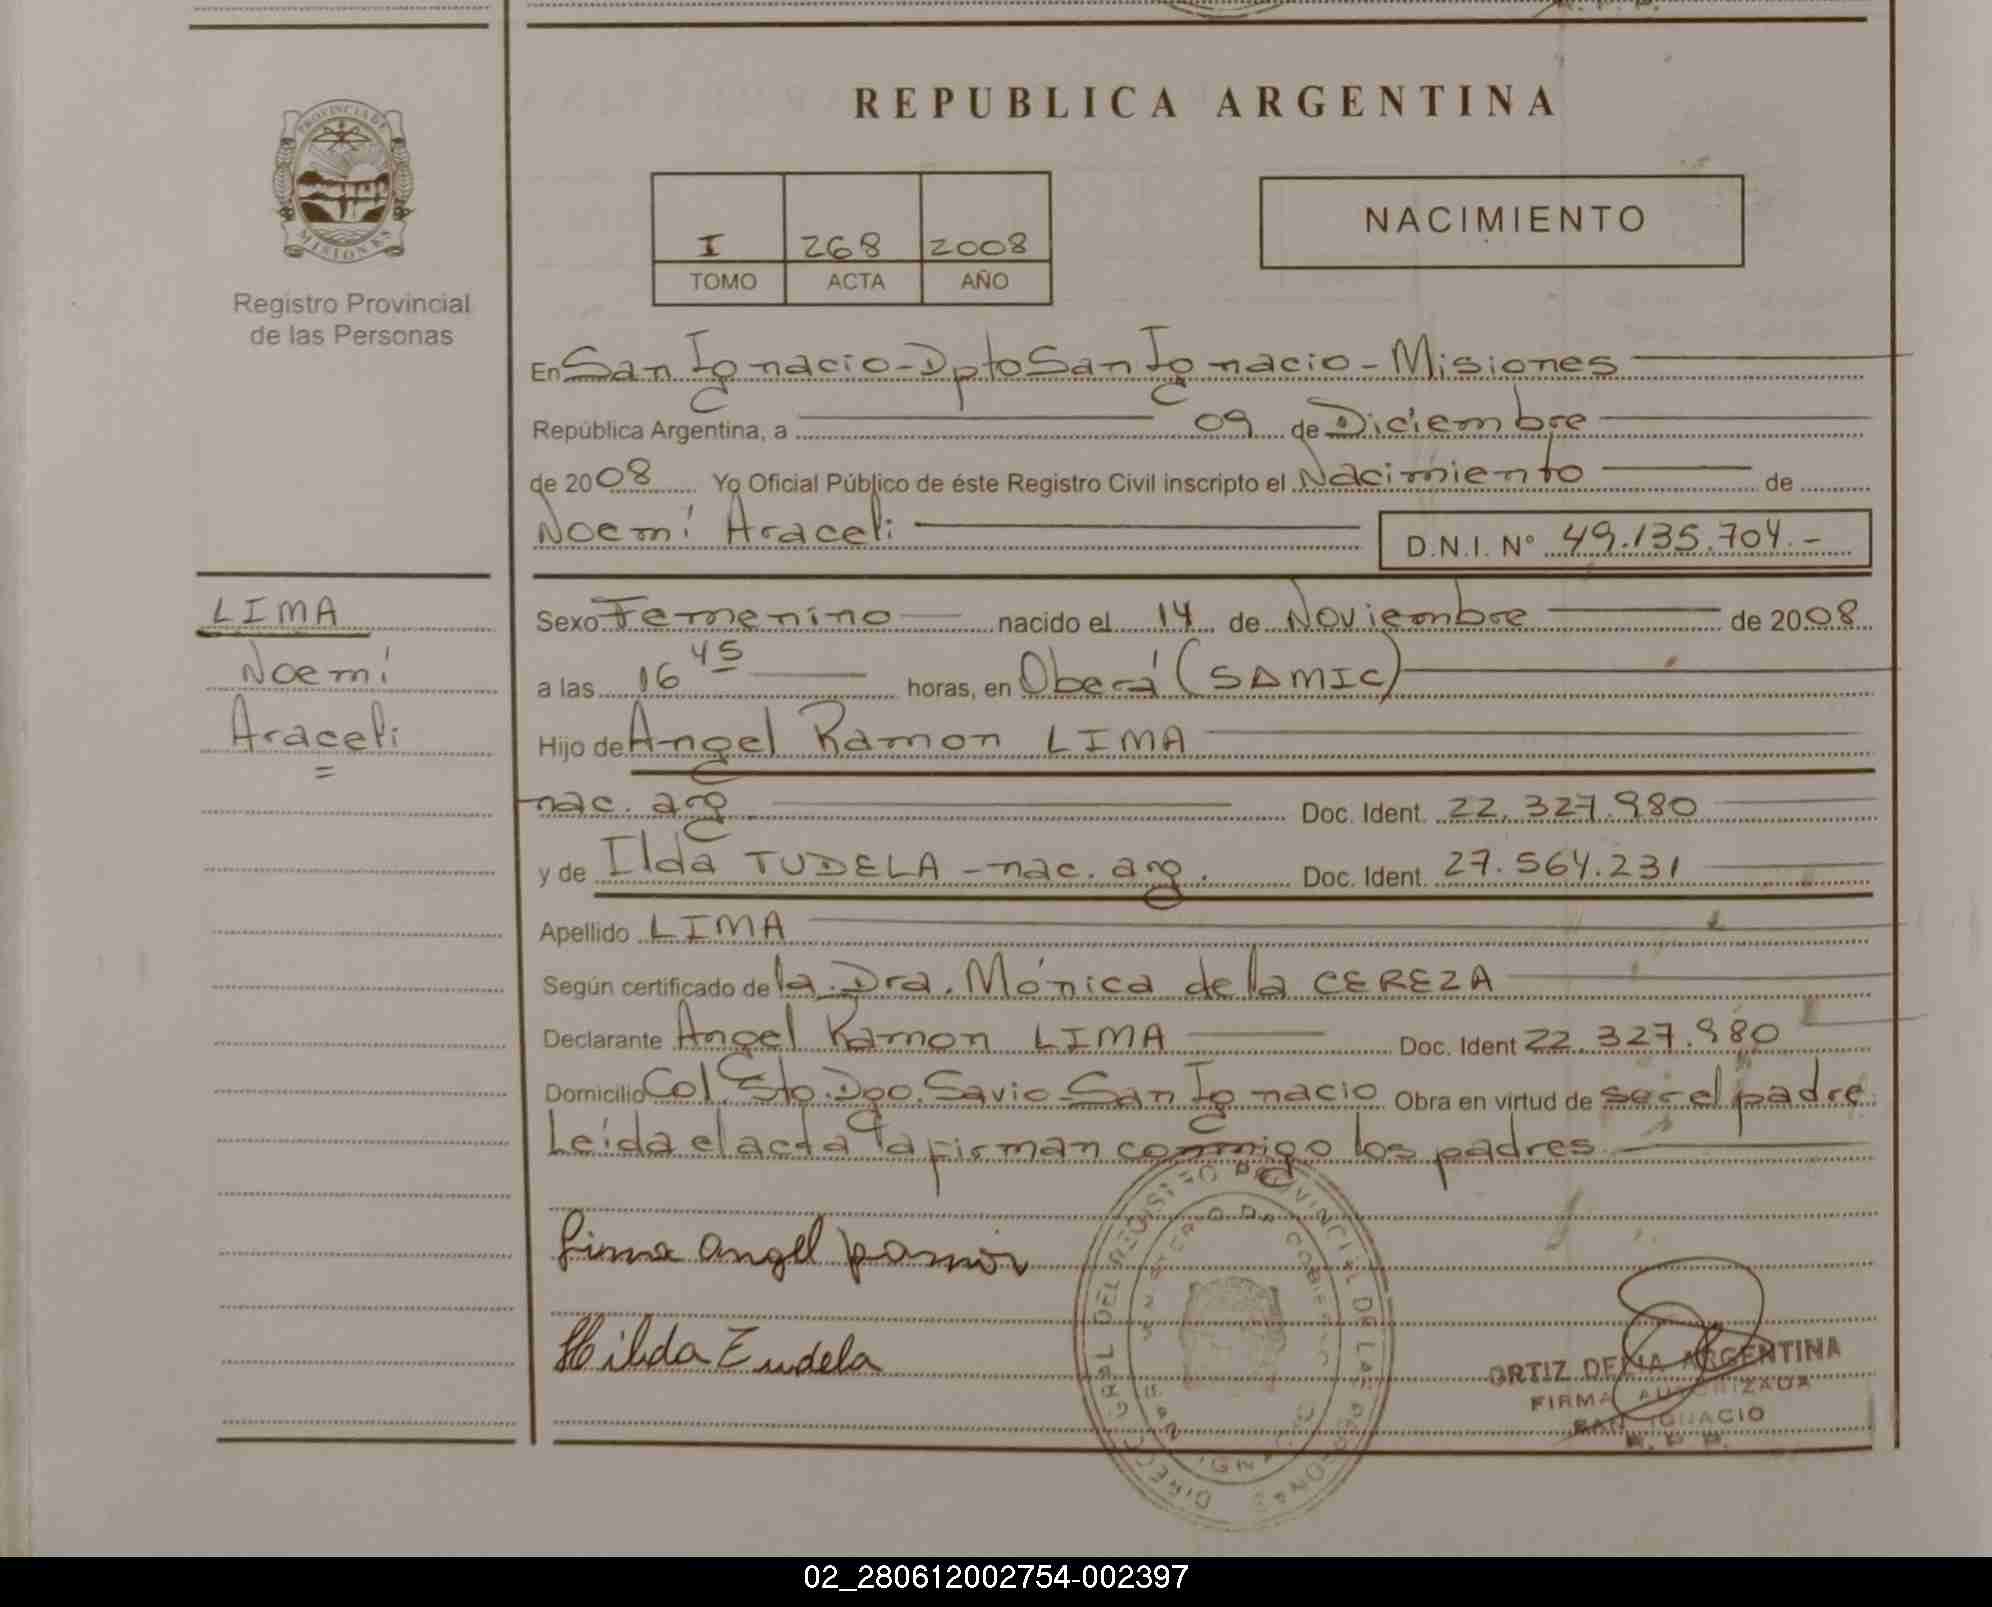 PROVINCIA DE
MISIONES
Registro Provincial
de las Personas
REPUBLICA ARGENTINA
I 268 2008
TOMO ACTA AÑO
NACIMIENTO
En San Ignacio - Dpto San Ignacio - Misiones
República Argentina, a 09 de Diciembre
de 2008 Yo Oficial Público de éste Registro Civil inscripto el Nacimiento de
Noemí Araceli D.N.I. Nº 49.135.704.-
LIMA
Noemí
Araceli
=
Sexo Femenino nacido el 14 de Noviembre de 2008
a las 16 45 horas, en Oberá (SAMIC)
Hijo de Angel Ramon LIMA
nac. arg Doc. Ident. 22.327.980
y de Ilda TUDELA - nac. arg. Doc. Ident. 27.564.231
Apellido LIMA
Según certificado de la Dra. Mónica de la CEREZA
Declarante Angel Ramon LIMA Doc. Ident 22.327.980
Domicilio Col. Sto. Dgo. Savio San Ignacio Obra en virtud de ser el padre
Leída el acta la firman conmigo los padres
Lima angel ramon
Hilda Tudela
ORTIZ DELIA ARGENTINA
FIRMA AUTORIZADA
SAN IGNACIO
R. P. P.
02_280612002754-002397